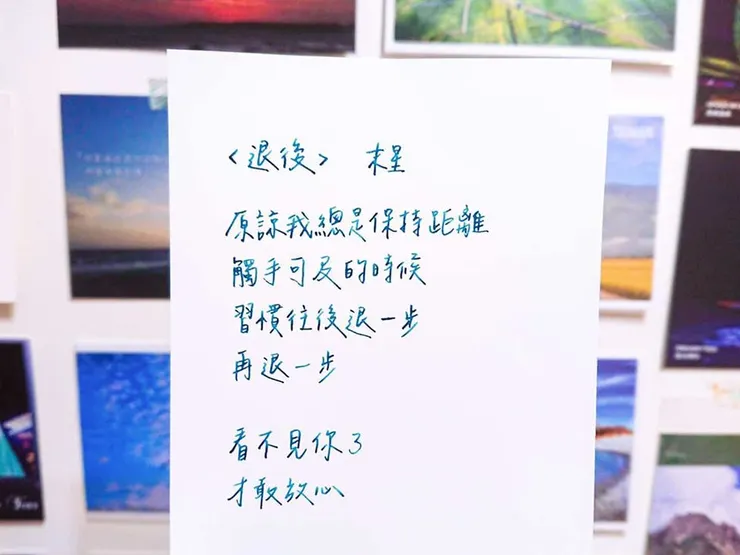 <退後> 末星
原諒我總是保持距離
觸手可及的時候
習慣往後退一步
再退一步
看不見你了
才敢放心